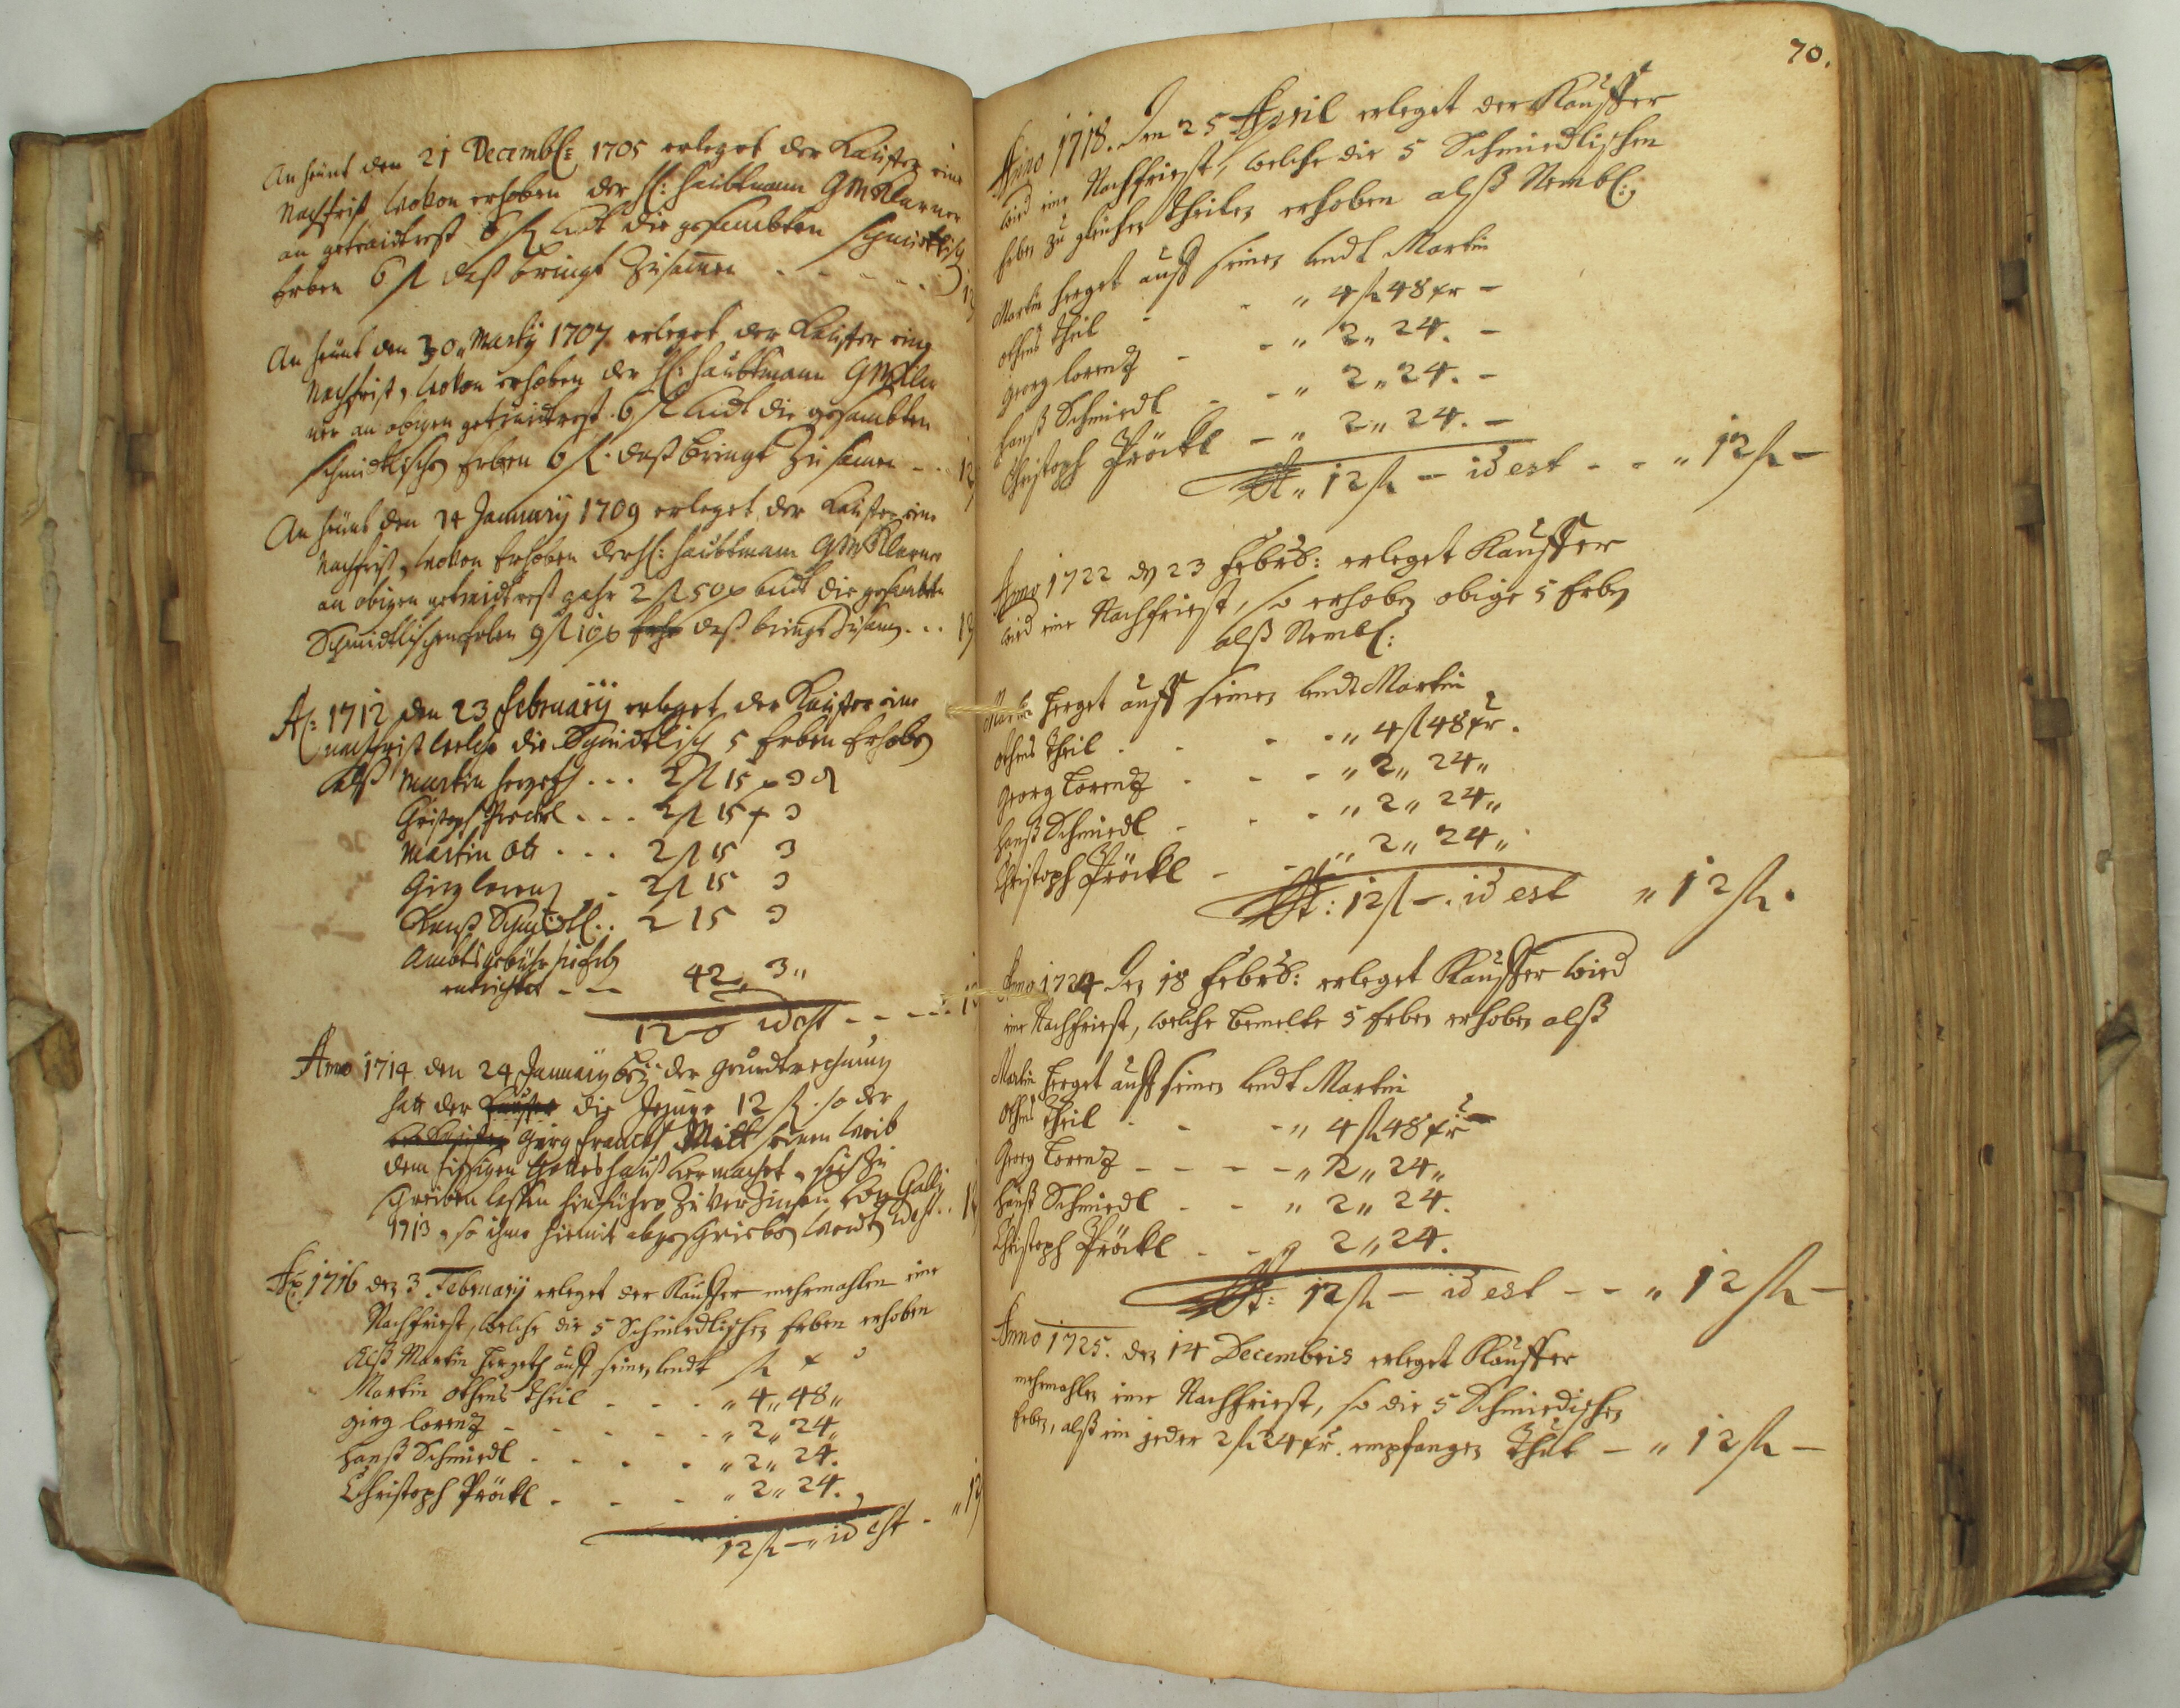 An heünt den 21 Decembl: 1705 erleget der Kauffer eine
Nachfrist wovon erhoben der H: Haubtmann
an getraidtrest 6 fl undt die gesambten Schmidtlisch
Erben 6 fl daß bringt Zusamen - - - - -
An heünt den 30 Marty 1707 erleget der Kauffer eine
Nachfrist, wovon erhoben der H: Haubtmann
ner an obigen getraidtrest 6 fl undt die gesambten
Schmidtlischen Erben 6 fl. daß bringt Zusamen - . 12
An heünt den 14 January 1709 erleget der Kauffer eine
Nachfrist, wovon Erhoben der H: Haubtmann
an obigen getraidtrest 2 fl 50 x undt die gesambten
Schmidtlischen Erben 9 fl 10 x daß bringt Zusamen . . . 12
A: 1712 den 23 february erleget der Kauffer eine
nachfrist welche die Schmidtlisch 5 Erben Erhoben
Alß Martin Hergeth . . . 2 fl 15 x 3 d
Christoph Prockl . . . 2 fl 15 x 3
Martin Ott . . . 2 fl 15 3
Girg lorentz - 2 fl 15 3
Hanß Schmidl . . 2 15 3
Ambtsgebühr
entrichtet - - - 42 „ 3 „
12 - 0 id est - - - -
Anno 1714 den 24 January bey der grundtrechnung
hatt der Kauffer die 12 fl. so der
Girg Seinem Weib
dem hiesigen Gotteshauß vermachet, sich Zu
schreiben lassen hinführo Zu Verzinsen von Gally
1713, so ihme hiemit abgeschrieben werdt id est . .
Ao 1716 den 3 February erleget der Kauffer mehrmahlen eine
Nachfriest, welche die 5 Schmiedlischen Erben erhoben
Alß Martin Hergeth auff seinen undt fl x d
Martin Othens theil - - . „ 4 „ 48 „
girg lorentz - - - - - „ 2 „ 24 „
Hanß Schmiedl . . . . „ 2 „ 24.
Christoph Pröckl - - - „ 2 „ 24.
12 fl - „ id est - „ 12
70.
Anno 1718. den 25 April erleget der Kauffer
wied eine Nachfriest, welche die 5 Schmiedlischen
Erben zu gleichen theilen erhoben alß Nembl:
Martin Herget auff seinen undt Martin
othens theil - - „ 4 fl 48 xr -
georg lorentz - - „ 2 „ 24. -
Hanß Schmiedl - - „ 2 „ 24. -
Christoph Pröckl - „ 2 „ 24. -
„ 12 fl - id est - - „ 12 fl -
Anno 1722 den 23 Febru: erleget Kauffer
wied eine Nachfriest, so erhoben obige 5 Erben
alß Nembl:
Martin Herget auff seinen undt Martin
othens theil . . - - „ 4 fl 48 xr .
Georg Lorentz . - - „ 2 „ 24 „
Hanß Schmiedl - - - „ 2 „ 24 „
Christoph Pröckl - - „ 2 „ 24 „
: 12 fl - . id est „ 12 fl .
Anno 1724 den 18 Febru: erleget Kauffer wied
eine Nachfriest, welche bemelte 5 Erben erhoben alß
Martin Herget auff seinen undt Martin
othens theil . . - „ 4 fl 48 xr -
Georg Lorentz - - - - „ 2 „ 24 „
Hanß Schmiedl - - „ 2 „ 24.
Christoph Pröckl - - „ 2 „ 24.
: 12 fl - id est - - „ 12 fl -
Anno 1725. den 14 Decembris erleget Kauffer
mehrmahlen eine Nachfriest, so die 5 Schmiedischen
Erben, alß ein jeder 2 fl 24 xr. empfangen thut - „ 12 fl -